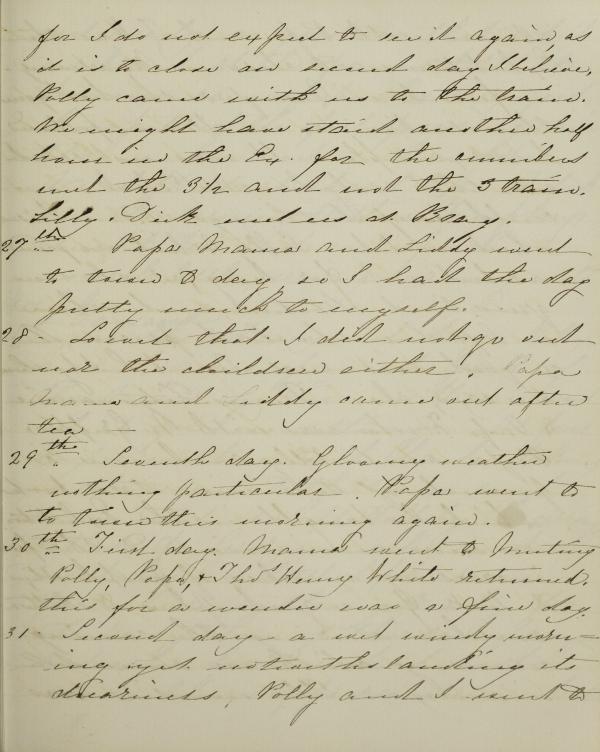 for I do not expect to see it again, as
it is to close on second day I believe,
Polly came with us to the train.
We might have staid another half
hour in the Ex. for the omnibus
met the 3½ and not the 3 train.
Lilly. Dick met us at Bray.
27th Papa Mama and Liddy went
to town to day, so I had the day
pretty much to myself.
28 - So wet that I did not go out
nor the children either. Papa
Mama and Liddy came out after
tea —
29th Seventh day. Gloomy weather
nothing particular. Papa went to
to town this morning again.
30th First day. Mama went to Meeting
Polly, Papa, & Thos Henry White returned.
this for a wonder was a fine day.
31 - Second day - a wet windy morn=
ing yet notwithstanding its
dreariness, Polly and I went to